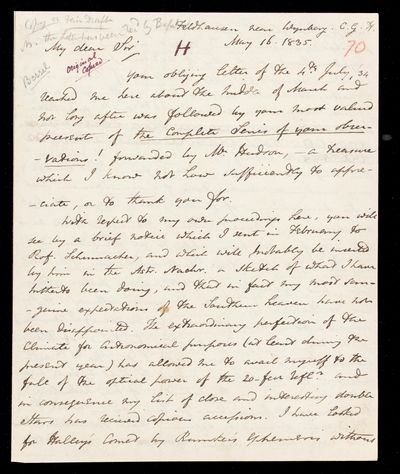 Copy or Fair Draft
In the letter has been
ed by Bessel
Feldhausen near Wynberg. C.G.H.
My dear Sir
H
May 16. 1835.
70
Bessel
Original
Copied
your obliging letter of the 4th July, 34
reached me here about the middle of March and
not long after was followed by your most valued
present of the Complete Series of your obser-
-vations! forwarded by Mr Hudson, – a treasure
which I know not how sufficiently to appre-
-ciate, or to thank you for.
With respect to my own proceedings here, you will
see by a brief notice which I sent in February to
Prof. Schumacher, and which will probably be inserted
by him in the Astr. Nachr. a sketch of what I have
hitherto been doing, and that in fact my most san-
-guine expectations of the Southern heaven have not
been disappointed. The extraordinary perfection of the
Climate for astronomical purposes (at least during the
present year) has allowed me to avail myself to the
full of the optical power of the 20-feet Reflr and
in consequence my list of close and interesting double
Stars has received copious accessions. I have looked
for Halley's Comet by Rumkers Ephemeris without